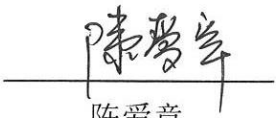 陈爱章
陈爱章